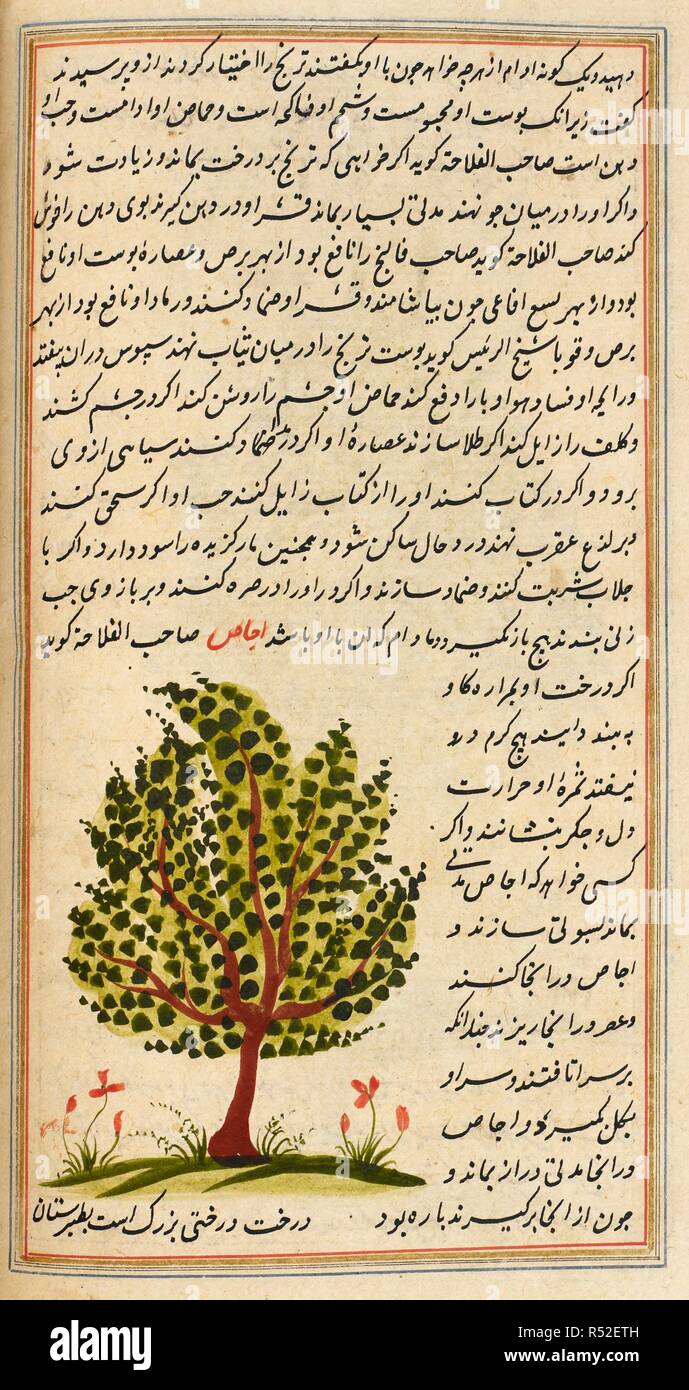 دهید و یک کونه ادام از هرچه خواهد چون با او بکفتند ترنج را اختیار کردند از وپرسیدند
کفت زیرانک پوست او مشمومست و شحم او فاکهه است و حماض او ادامست و حب او
دهن است صاحب الفلاحة کوید اکر خواهی که ترنج بر درخت بماند و زیادت شود
واکر او را در میان جو نهند مدتی بسیار بماند قشر او در دهن کیرند بوی دهن را خوش
کند صاحب الفلاحة کوید صاحب فالج را نافع بود از بهر برص و عصارهٔ پوست او نافع
بود از بهر لسع افاعی چون بیاشامند و قشر او ضماد کنند و رماد او نافع بود از بهر
برص و قوبا شیخ الرئیس کوید پوست ترنج را در میان ثیاب نهند سپوس در ان نیفتد
ورایحهٔ او فساد هوا و وبا را دفع کند حماض او چشم را روشن کند اکر در چشم کشند
وکلف را زایل کند اکر طلا سازند عصارهٔ او اکر در ضماد کنند سیاهی از وی
برود واکر در کتاب کنند او را از کتاب زایل کنند حب او اکر سحق کنند
وبر لذع عقرب نهند در حال ساکن شود و همچنین مارکزیده را سود دارد واکر با
جلاب شربت کنند و ضماد سازند واکر در او را در صره کنند وبر بازوی چپ
زنی بندند هیچ بار نکیرد و مادام که ان با او باشد اجاص صاحب الفلاحة کوید
اکر درخت او بمراره کاو
به بندایند هیچ کرم درو
نیفتد ثمرهٔ او حرارت
دل و جکر بنشانند واکر
کسی خواهد که اجاص مدتی
بماند سبوئی سازند و
اجاص در انجا کنند
وعصر در انجا ریزند چندانکه
بر سر ان افتند و سر او
بکل کیرند و اجاص
در انجا مدتی دراز بماند و
چون از انجا برکیرند تازه بود
درخت درختی بزرک است بطبرستان
alamy
Image ID: R52ETH
www.alamy.com